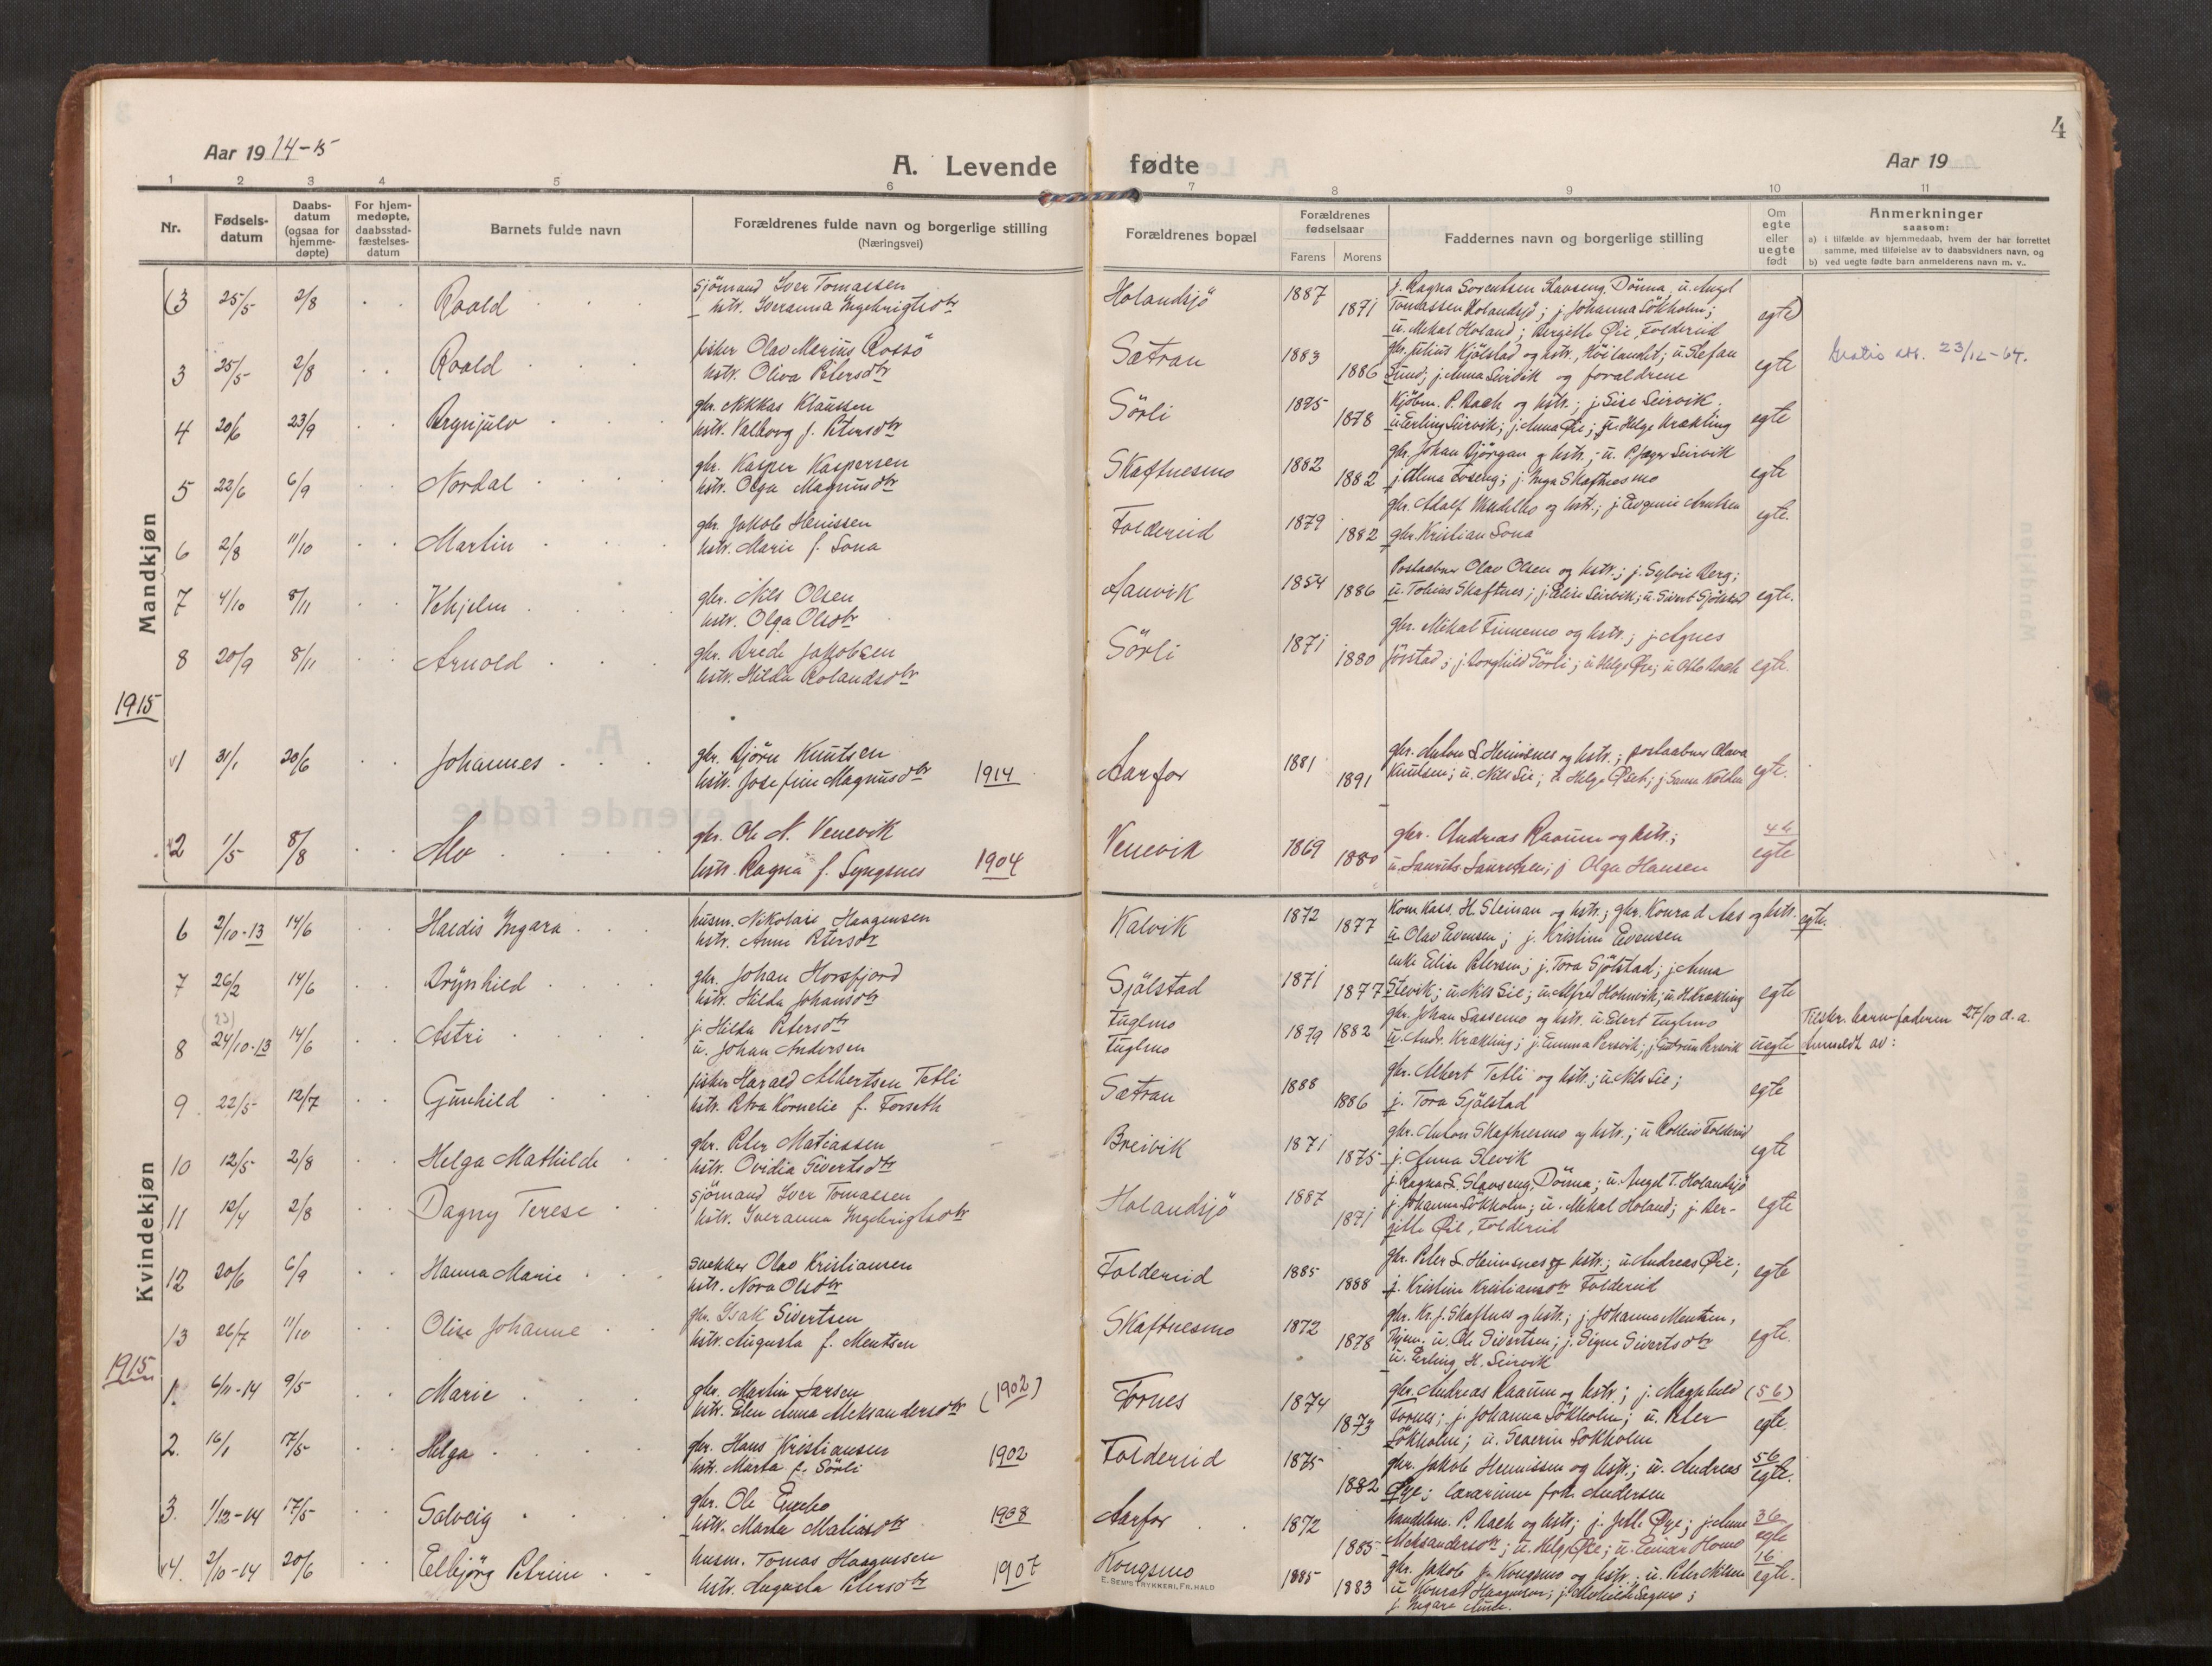 4
Aar 19 14-15
A. Levende fødte
Aar 19
1 2 3 4 5 6 7 8 9 10 11
Nr.
Fødsels-
datum
Daabs-
datum
(ogsaa for
hjemme-
døpte)
For hjem-
medøpte,
daabsstad-
fæstelses-
datum
Barnets fulde navn
Forældrenes fulde navn og borgerlige stilling
(Næringsvei)
Forældrenes bopæl
Forældrenes
fødselsaar
Farens Morens
Faddernes navn og borgerlige stilling
Om
egte
eller
uegte
født
Anmerkninger
saasom:
a) i tilfælde av hjemmedaab, hvem der har forrettet
samme, med tilføielse av to daabsvidners navn, og
b) ved uegte fødte barn anmelderens navn m. v..
Mandkjøn
(3 25/5 2/8 Roald
sjömand Iver Tomassen
hstr. Iveranna Ingebrigtsdtr
Holandsjö 1887 1871
j. Ragna Sorentsen Slavseng, Dönna, u. Angel
Tomassen Holandsjö; j. Johanna Sökholm;
u. Mekal Holand; Bergitte Øie, Foldereid
egte)
3 25/5 2/8 Roald
fisker Olav Marius Rossö
hstr. Oliva Petersdtr
Sætran 1883 1886
gbr. Julius Kjölstad og hstr., Höilandet; u. Stefan
Lund; j. Anna Seirvik og foraldrene
egte
23/12-64.
4 20/6 23/9 Brynjulv
gbr. Mikkas Klaussen
hstr. Valborg f. Petersdtr
Sörli 1875 1878
Kjöbm. P. Bach og hstr.; j. Sise Seirvik.
u. Erling Seirvik; j. Anna Øie; u. Helge Krækling
egte
5 22/6 6/9 Nordal
gbr. Kasper Kaspersen
hstr. Olga Magnusdtr
Skaftnesmo 1882 1882
gbr. Johan Björgan og hstr.; u. P. Jager Seirvik
j. Alma Foseng; j. Inga Skaftnesmo
egte
6 2/8 11/10 Martin
gbr. Jakob Henissen
hstr. Marie f. Sona
Foldereid 1879 1882
gbr. Adolf Medelbo og hstr.; j. Eugenie Arntsen
gbr. Kristian Sona
egte.
7 4/10 8/11 Vehjelm
gbr. Nils Olsen
hstr. Olga Olsdtr
Aanvik 1854 1886
Postaabner Olav Olsen og hstr.; j. Sylvie Berg;
u. Tobias Skaftnes; j. Elise Seirvik; u. Sivert Sjölstad
egte.
8 20/9 8/11 Arnold
gbr. Brede Jakobsen
hstr. Hilda Rolandsdtr
Sörli 1871 1880
gbr. Mekal Finnemo og hstr.; j. Agnes
Jörstad; j. Borghild Sörli; u. Helge Øie; u. Otto Bach
egte.
1915
1 31/1 20/6 Johannes
gbr. Björn Knutsen
hstr. Josefine Magnusdtr 1914
Aarfor 1881 1891
gbr. Anton S. Heimsnes og hstr.; postaabner Olava
Knutsen; u. Nils Sie; u. Helge Øie; j. Sanna Kolstu
egte.
2 1/5 8/8 Alv
gbr. Ole N. Venevik
hstr. Ragna f. Lyngsnes 1904
Venevik 1869 1880
gbr. Andreas Raaum og hstr.;
u. Laurits Lauritsen; j Olga Hansen
egte
Kvindekjøn
6 2/10-13 14/6 Haldis Ingara
husm. Nikolai Haagensen
hstr. Anna Petersdtr
Kalvik 1872 1877
Kom.kass. H. Steinan og hstr.; gbr. Konrad Aas og hstr.
u. Olav Evensen; j. Kristine Evensen
egte.
7 26/2 14/6 Brynhild
gbr. Johan Horsfjord
hstr. Hilda Johansdtr
Sjölstad 1871 1877
enke Elise Petersen; j. Tora Sjölstad; j. Anna
Slevik; u. Nils Sie; u. Alfred Holmvik; u. H. Krækling
egte
8 (23) 24/10-13 14/6 Astri
j. Hilda Petersdtr
u. Johan Andersen
Fuglmo
Fuglmo 1879 1882
gbr. Johan Sassemo og hstr. u. Edert Fuglmo
u. Andr. Krækling; j. Emma Persvik; j. Gudrun Persvik
uegte
Tilskr. barnefaderen 27/10 d.a.
Anmeldt av:
9 22/5 12/7 Gunhild
fisker Harald Albertsen Tetli
hstr. Petra Kornelie f. Forseth
Sætran 1888 1886
gbr. Albert Tetli og hstr.; u. Nils Sie;
j. Tora Sjölstad
egte
10 12/5 2/8 Helga Mathilde
gbr. Peter Matiassen
hstr. Ovidia Sivertsdtr
Breivik 1871 1875
gbr. Anton Skaftnesmo og hstr.; u Rolleiv Foldereid
j. Anna Slevik
egte
11 12/4 2/8 Dagny Terese
sjömand Iver Tomassen
hstr. Iveranna Ingebrigtsdtr
Holandsjö 1887 1871
j. Ragna S. Slavseng, Dönna; u. Angel T. Holandsjö
j. Johanna Sökholm; u. Mekal Holand; j. Ber-
gitte Øie, Foldereid
egte
12 20/6 6/9 Hanna Marie
snekker Olav Kristiansen
hstr. Nora Olsdtr
Foldereid 1885 1888
gbr. Peter S. Heimsnes og hstr.; u. Andreas Øie;
j. Kristine Kristiansdtr Foldereid
egte
13 26/7 11/10 Olise Johanne
gbr. Isak Sivertsen
hstr. Augusta f. Mentsen
Skaftnesmo 1872 1878
gbr. Kr. J. Skaftnes og hstr.; j. Johanna Mentsen,
u. Ole Sivertsen; j. Signe Sivertsdtr
u. Erling H. Seirvik
egte.
1915
1. 6/11-14 9/5 Marie
gbr. Martin Larsen
hstr. Elen Anna Aleksandersdtr (1902)
Fornes 1874 1873
gbr. Andreas Raaum og hstr.; j. Magnhild
Fornes; j. Johanna Sökholm; u. Peter
Sökholm; u. Severin Sökholm
(56)
egte.
2. 16/1 17/5 Helga
gbr. Hans Kristiansen
hstr. Marta f. Sörli 1902
Foldereid 1875 1882
gbr. Jakob Hennissen og hstr.; u. Andreas
Øye; lærerinne Joh. Andersen
56
egte.
3. 1/12-14 17/5 Solveig
gbr. Ole
hstr. Marta Matiasdtr 1908
Aarfor 1872 1885
handelsm. P. Bach og hstr; j. Jette Øye; j. Anne
Aleksandersdtr; u. Helge Øie; u. Einar Homo
36
egte
4. 2/10-14 20/6 Elbjörg Petrine
husm. Tomas Haagensen
hstr. Augusta Petersdtr 1907
Kongsmo 1885 1883
gbr. Jakob Kongsmo og hstr.; u. Peter Nilsen
u Konrat Haagensen; j.
j. Ingara
16
egte.
E. SEM'S TRYKKERI, FR.HALD